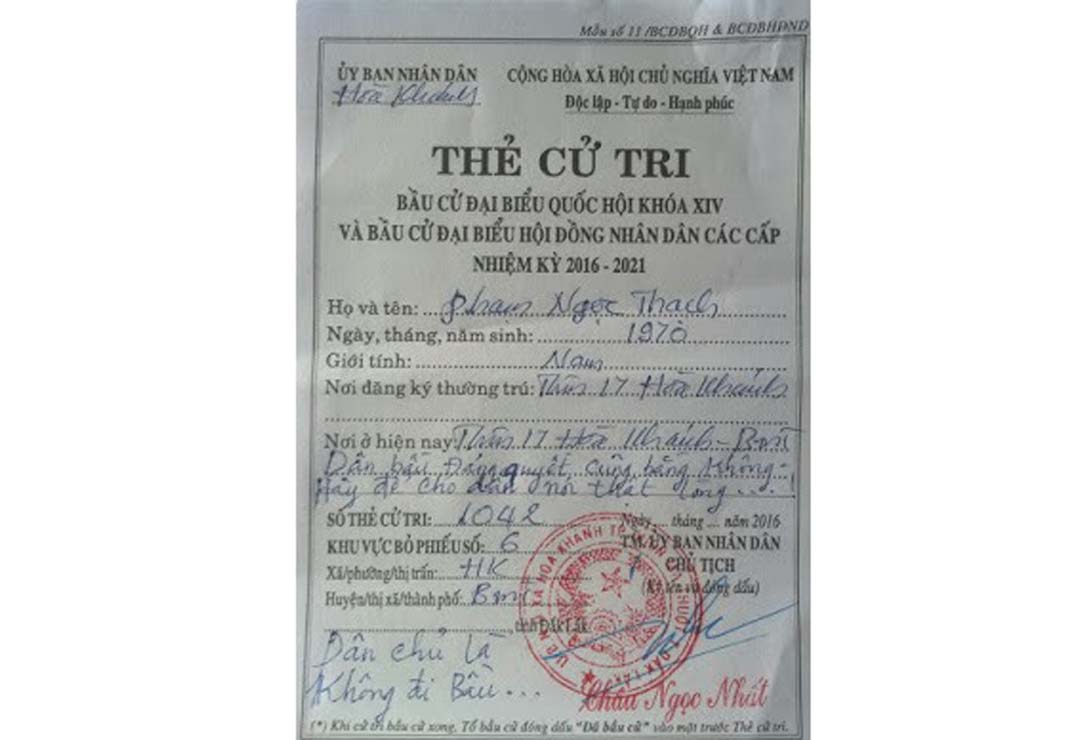 Mẫu số 11/BCĐBQH & BCĐBHĐND
ỦY BAN NHÂN DÂN
Hòa Khánh
CỘNG HÒA XÃ HỘI CHỦ NGHĨA VIỆT NAM
Độc lập - Tự do - Hạnh phúc
THẺ CỬ TRI
BẦU CỬ ĐẠI BIỂU QUỐC HỘI KHÓA XIV
VÀ BẦU CỬ ĐẠI BIỂU HỘI ĐỒNG NHÂN DÂN CÁC CẤP
NHIỆM KỲ 2016 - 2021
Họ và tên: Phạm Ngọc Thạch
Ngày, tháng, năm sinh: 1970
Giới tính: Nam
Nơi đăng ký thường trú: Thôn 17 Hòa Khánh
Nơi ở hiện nay Thôn 17 Hòa Khánh - Bmt
Dân bầu Đảng quyết cũng bằng không -
Hãy để cho dân nói thật lòng ... !
SỐ THẺ CỬ TRI: 1042
KHU VỰC BỎ PHIẾU SỐ: 6
Xã/phường/thị trấn: HK
Huyện/thị xã/thành phố: Bmt
, tỉnh Đắk Lắk
Ngày .... tháng .... năm 2016
TM. ỦY BAN NHÂN DÂN
CHỦ TỊCH
(Ký tên và đóng dấu)
Dân chủ là
Không đi Bầu ...
Châu Ngọc Nhất
(*) Khi cử tri bầu cử xong, Tổ bầu cử đóng dấu "Đã bầu cử" vào mặt trước Thẻ cử tri.